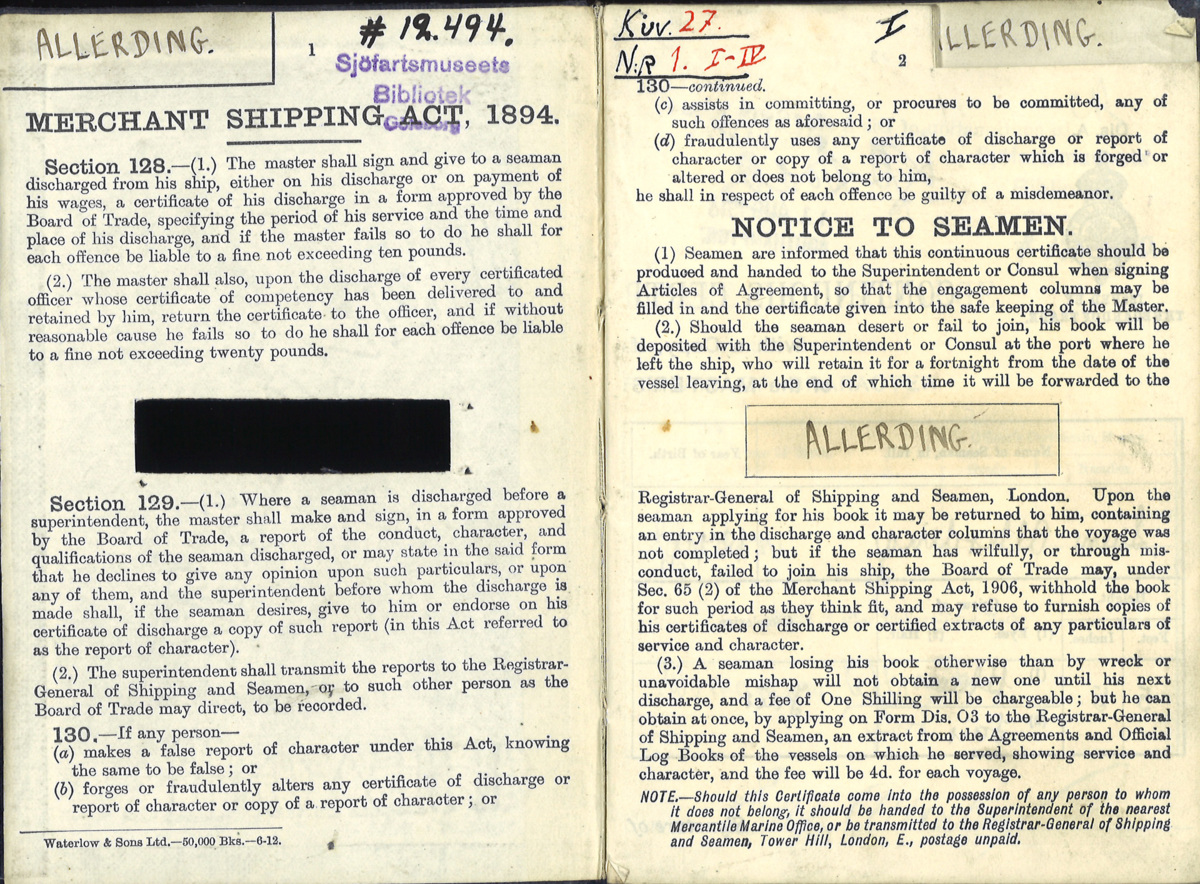 ALLERDING.
1
# 19.494.
Sjöfartsmuseets
Bibliotek
Göteborg
MERCHANT SHIPPING ACT, 1894.
Section 128.—(1.) The master shall sign and give to a seaman
discharged from his ship, either on his discharge or on payment of
his wages, a certificate of his discharge in a form approved by the
Board of Trade, specifying the period of his service and the time and
place of his discharge, and if the master fails so to do he shall for
each offence be liable to a fine not exceeding ten pounds.
(2.) The master shall also, upon the discharge of every certificated
officer whose certificate of competency has been delivered to and
retained by him, return the certificate to the officer, and if without
reasonable cause he fails so to do he shall for each offence be liable
to a fine not exceeding twenty pounds.
Section 129.—(1.) Where a seaman is discharged before a
superintendent, the master shall make and sign, in a form approved
by the Board of Trade, a report of the conduct, character, and
qualifications of the seaman discharged, or may state in the said form
that he declines to give any opinion upon such particulars, or upon
any of them, and the superintendent before whom the discharge is
made shall, if the seaman desires, give to him or endorse on his
certificate of discharge a copy of such report (in this Act referred to
as the report of character).
(2.) The superintendent shall transmit the reports to the Registrar-
General of Shipping and Seamen, or to such other person as the
Board of Trade may direct, to be recorded.
130.—If any person—
(a) makes a false report of character under this Act, knowing
the same to be false; or
(b) forges or fraudulently alters any certificate of discharge or
report of character or copy of a report of character; or
Waterlow & Sons Ltd.—50,000 Bks.—6-12.
Kuv. 27.
N:R 1. I-IV
I
2
LLERDING.
130—continued.
(c) assists in committing, or procures to be committed, any of
such offences as aforesaid; or
(d) fraudulently uses any certificate of discharge or report of
character or copy of a report of character which is forged or
altered or does not belong to him,
he shall in respect of each offence be guilty of a misdemeanor.
NOTICE TO SEAMEN.
(1) Seamen are informed that this continuous certificate should be
produced and handed to the Superintendent or Consul when signing
Articles of Agreement, so that the engagement columns may be
filled in and the certificate given into the safe keeping of the Master.
(2.) Should the seaman desert or fail to join, his book will be
deposited with the Superintendent or Consul at the port where he
left the ship, who will retain it for a fortnight from the date of the
vessel leaving, at the end of which time it will be forwarded to the
ALLERDING.
Registrar-General of Shipping and Seamen, London. Upon the
seaman applying for his book it may be returned to him, containing
an entry in the discharge and character columns that the voyage was
not completed; but if the seaman has wilfully, or through mis-
conduct, failed to join his ship, the Board of Trade may, under
Sec. 65 (2) of the Merchant Shipping Act, 1906, withhold the book
for such period as they think fit, and may refuse to furnish copies of
his certificates of discharge or certified extracts of any particulars of
service and character.
(3.) A seaman losing his book otherwise than by wreck or
unavoidable mishap will not obtain a new one until his next
discharge, and a fee of One Shilling will be chargeable; but he can
obtain at once, by applying on Form Dis. O3 to the Registrar-General
of Shipping and Seamen, an extract from the Agreements and Official
Log Books of the vessels on which he served, showing service and
character, and the fee will be 4d. for each voyage.
NOTE.—Should this Certificate come into the possession of any person to whom
it does not belong, it should be handed to the Superintendent of the nearest
Mercantile Marine Office, or be transmitted to the Registrar-General of Shipping
and Seamen, Tower Hill, London, E., postage unpaid.